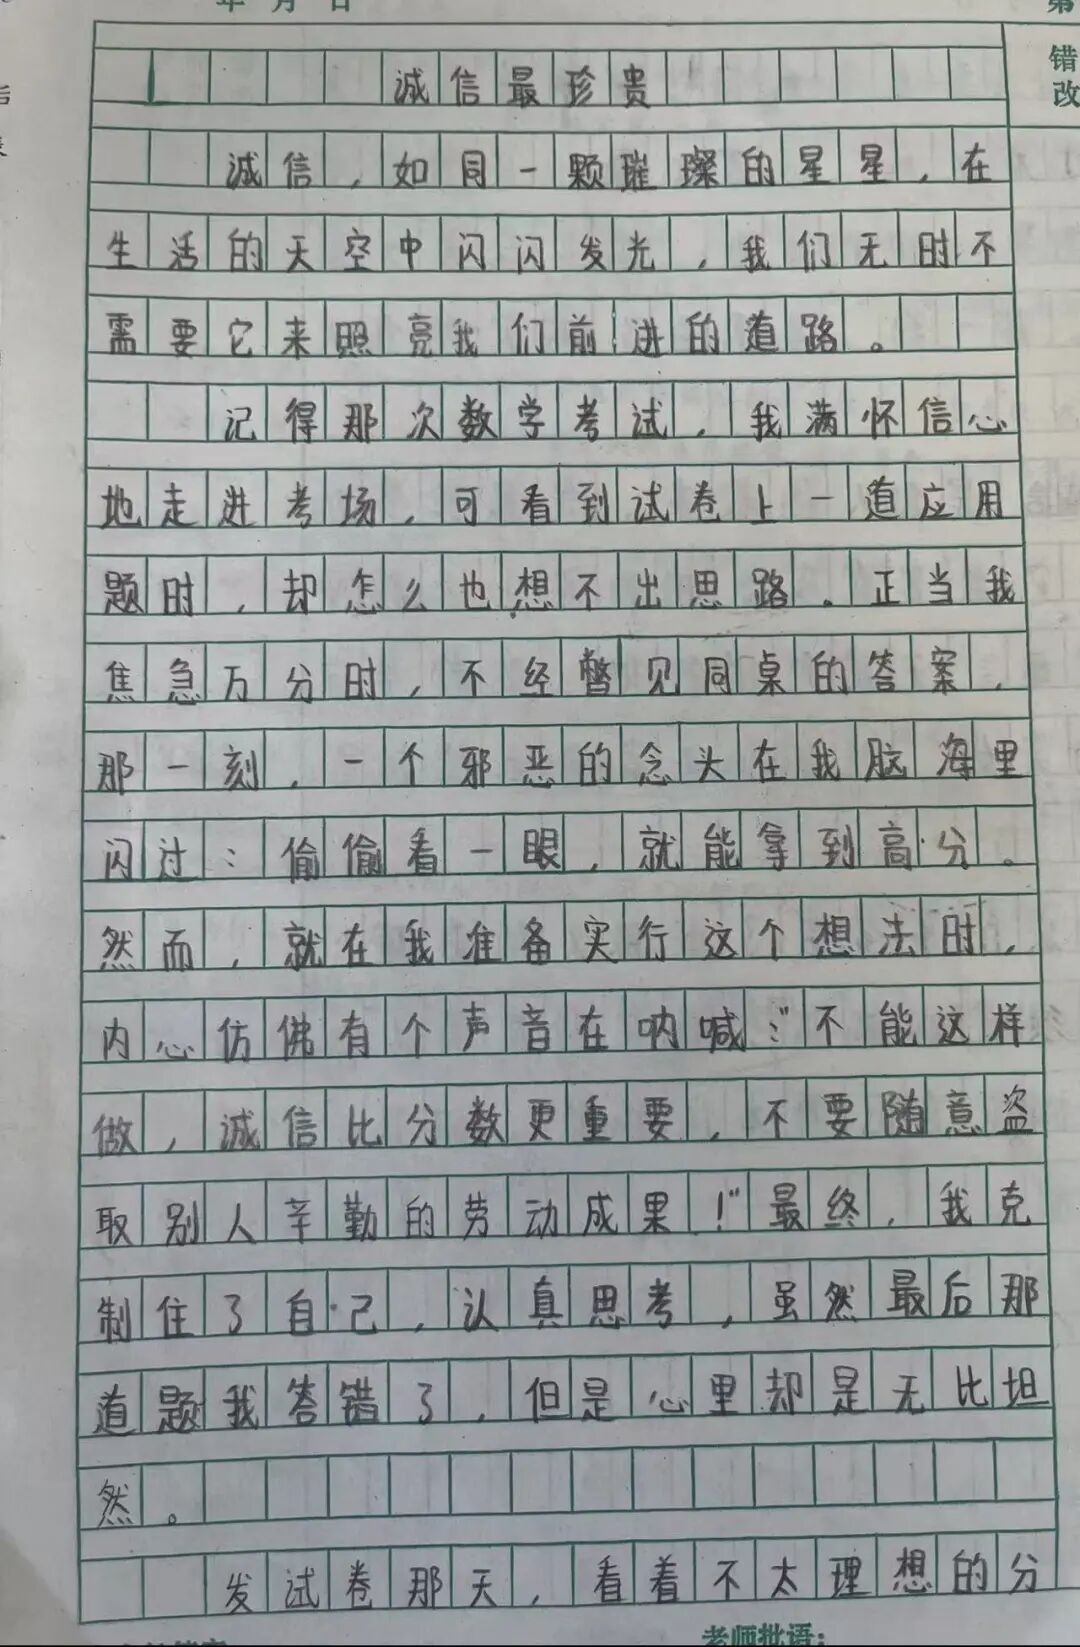 年 月 日
第
错
改
诚信最珍贵
诚信，如同一颗璀璨的星星，在
生活的天空中闪闪发光，我们无时不
需要它来照亮我们前进的道路。
记得那次数学考试，我满怀信心
地走进考场，可看到试卷上一道应用
题时，却怎么也想不出思路。正当我
焦急万分时，不经瞥见同桌的答案，
那一刻，一个邪恶的念头在我脑海里
闪过：偷偷看一眼，就能拿到高分。
然而，就在我准备实行这个想法时，
内心仿佛有个声音在呐喊：“不能这样
做，诚信比分数更重要，不要随意盗
取别人辛勤的劳动成果！”最终，我克
制住了自己，认真思考，虽然最后那
道题我答错了，但是心里却是无比坦
然。
发试卷那天，看着不太理想的分
老师批语：